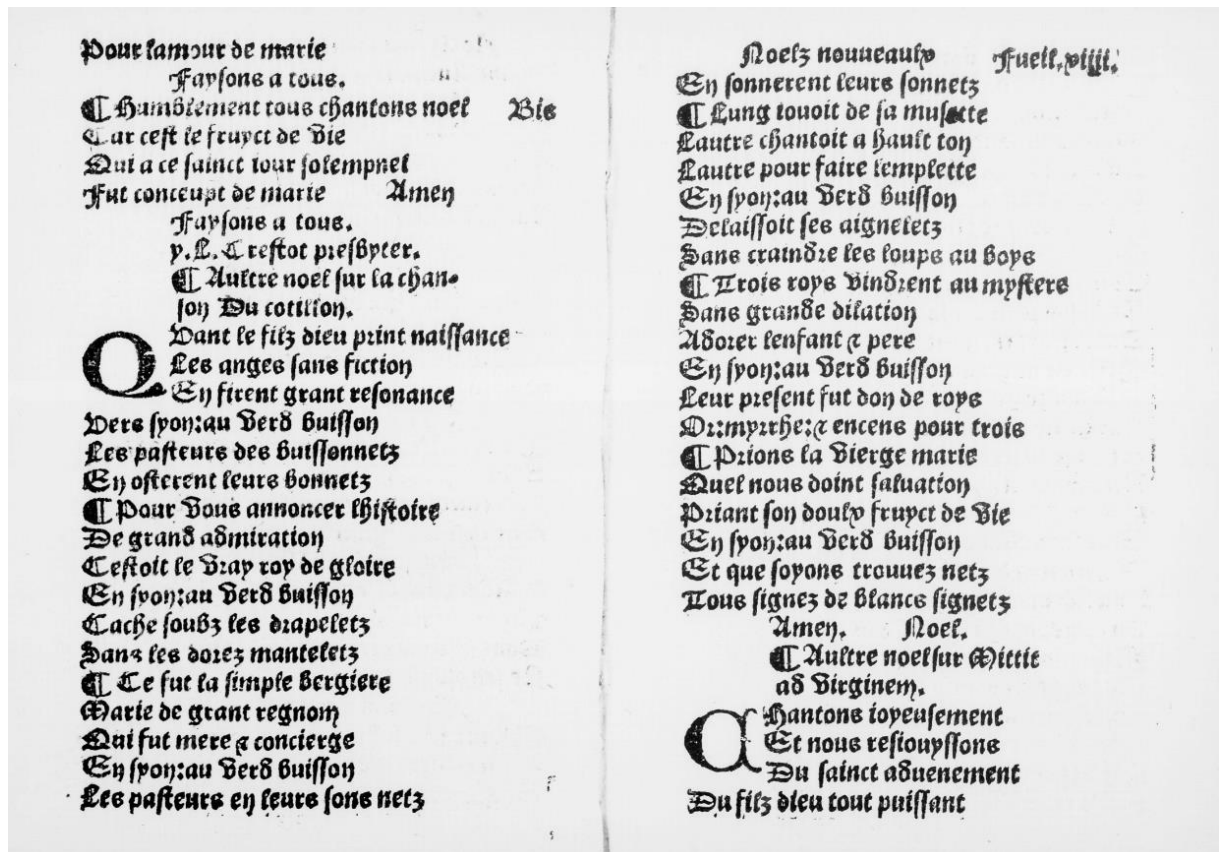 Pour lamour de marie
Faysons a tous.
¶ Humblement tous chantons noel Bis
Car cest le fruyct de vie
Qui a ce sainct iour solempnel
Fut conceupt de marie Amen
Faysons a tous.
y.L. Crestot presbyter.
¶ Aultre noel sur la chan-
son Du cotillon.
QVant le filz dieu print naissance
Les anges sans fiction
En firent grant resonance
Vers syon:au verd buisson
Les pasteurs des buissonnetz
En osterent leurs bonnetz
¶ Pour vous annoncer lhistoire
De grand admiration
Cestoit le vray roy de gloire
En syon:au verd buisson
Cache soubz les drapeletz
Sans les dorez manteletz
¶ Ce fut la simple bergiere
Marie de grant regnom
Qui fut mere ⁊ concierge
En syon:au verd buisson
Les pasteurs en leurs sons netz
Noelz nouueaulx Fueil.xiiii.
En sonnerent leurs sonnetz
¶ Lung iouoit de sa musette
Lautre chantoit a hault ton
Lautre pour faire lemplette
En syon:au verd buisson
Delaissoit ses aigneletz
Sans craindre les loups au boys
¶ Trois roys vindrent au mystere
Sans grande dilation
Adorer lenfant ⁊ pere
En syon:au verd buisson
Leur present fut don de roys
Or:myrrhe:⁊ encens pour trois
¶ Prions la vierge marie
Quel nous doint saluation
Priant son doulx fruyct de vie
En syon:au verd buisson
Et que soyons trouuez netz
Tous signez de blancs signetz
Amen. Noel.
¶ Aultre noel sur Mittit
ad virginem.
CHantons ioyeusement
Et nous resiouyssons
Du sainct aduenement
Du filz dieu tout puissant